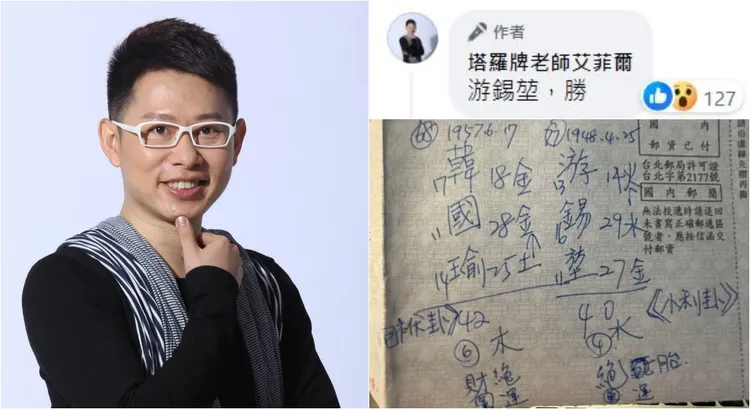 作者
塔羅牌老師艾菲爾
游錫堃，勝
127
68 1957.6.17
韓 18金
17
國 28金
11
瑜 25土
14
42
⑥ 木
財 絕
運
1948.4.25
游 14火
13
錫 29水
16
堃 27金
11
40 《小利卦》
④ 水
絕 胎
運
國內
郵資已付
台北郵局許可證
台北字第2177號
國內郵簡
無法投遞時請退回
未書寫正確郵遞區
號者，應按信函交
付郵資
請沿虛線先摺再撕